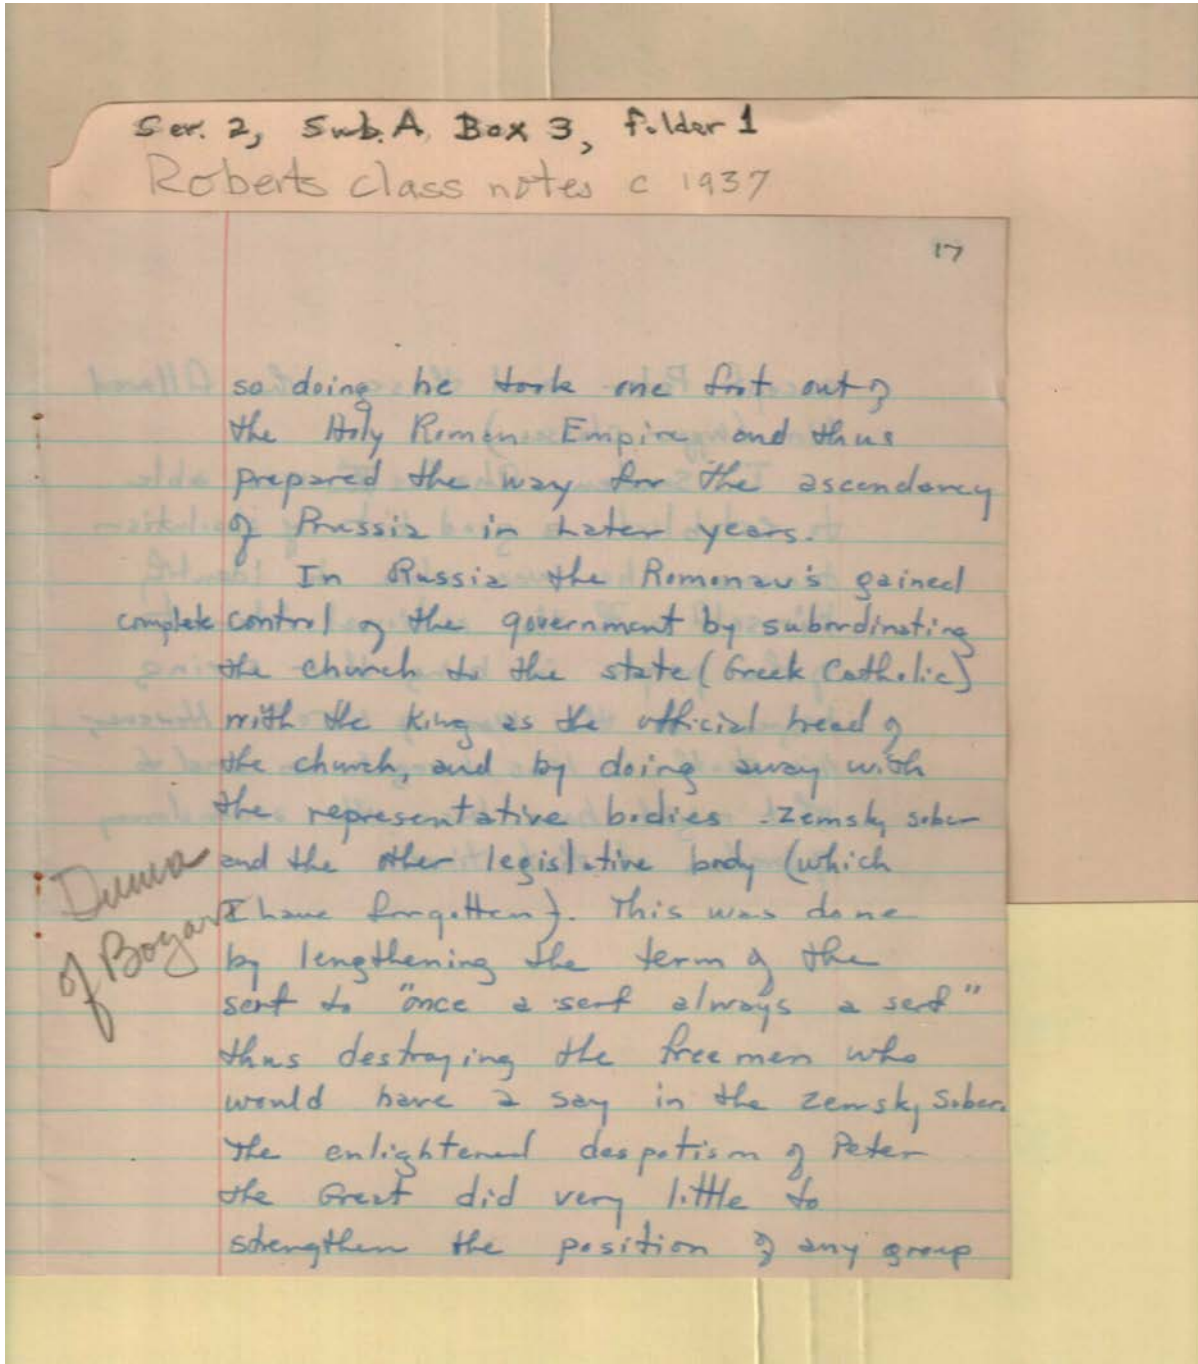 Ser. 2, Sub. A, Box 3, Folder 1
Roberts class notes c 1937
17
so doing he took one foot out of
the Holy Roman Empire and thus
prepared the way for the ascendancy
of Prussia in later years.
In Russia the Romonav's gained
complete control of the government by subordinating
the church to the state (Greek Catholic)
with the King as the official head of
the church, and by doing away with
the representative bodies - Zemsky sober
and the other legislative body (which
I have forgotten). This was done
Duma
of Boyars
by lengthening the term of the
serf to "once a serf always a serf"
thus destroying the free men who
would have a say in the Zemsky Sober.
The enlightened despotism of Peter
the Great did very little to
strengthen the position of any group